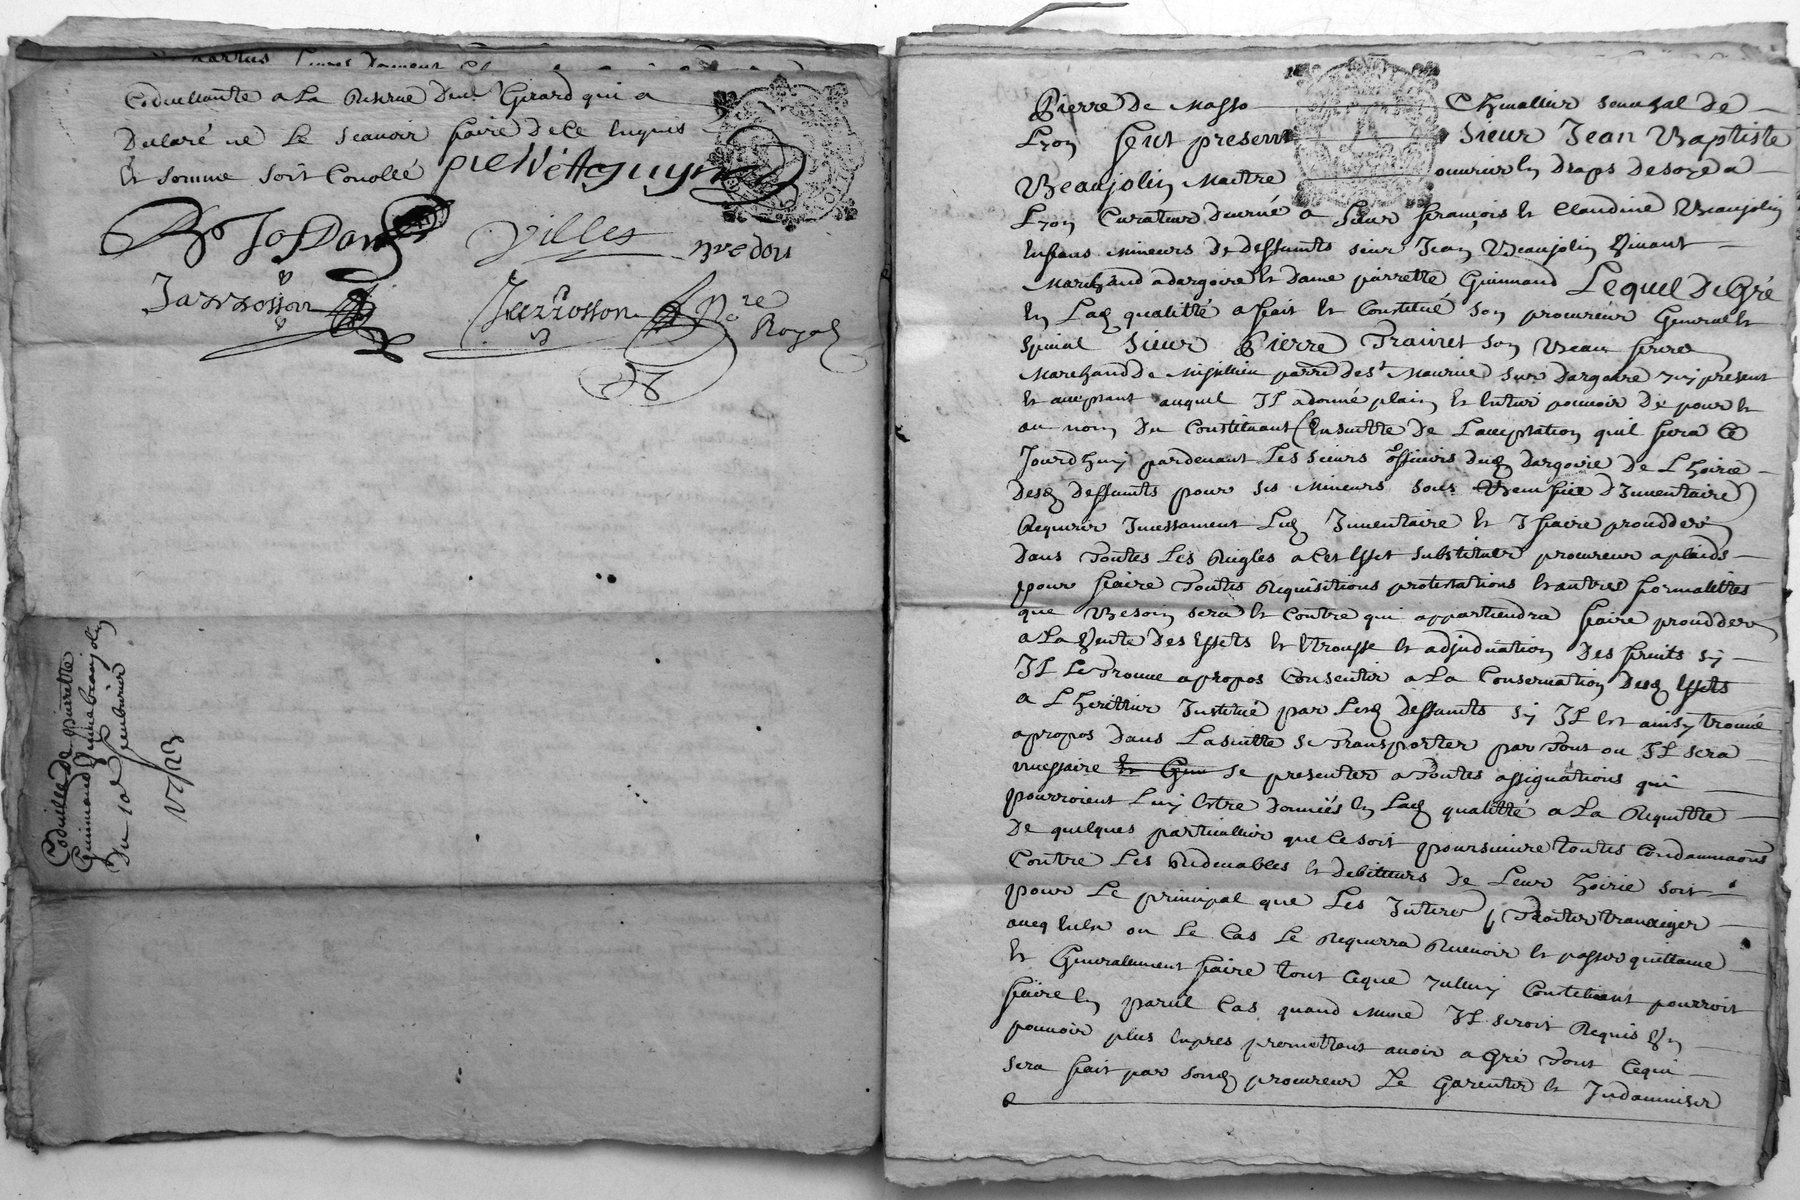 Codicillante a La Reserve dud Girard qui a
Declaré ne Le scavoir faire dece Enquis
Et somme soit Conollé
Villes
Jarrosson
Jarrosson Nre
Royal
Codicille de pierrette
Guinmand femme beaujolin
Du 10e Feuburier
1723
Pierre De Masso Chevallier senechal de
Lyon feut present Sieur Jean Baptiste
Beaujolin Maitre ouvrier En draps de soye a
Lyon Curateur decerné a sieur françois Et Claudine Beaujolin
Enfans mineurs de deffaints sieur Jean Beaujolin Vivant
Marchand a dargoire Et dame pierrette Guinmand Lequel De Gré
En Lad qualitté a fait Et Constitué son procureur General Et
special Sieur Pierre Trainet son Beau frere
Marchand De Misillieu parre de st Maurice sur dargoire icy present
Et acceptant auquel Il a donné plain Et Entier pouvoir De pour Et
au nom Du Constituant Ensuitte de Lacceptation quil fera Ce
Jourdhuy pardevant Les sieurs officiers dud Dargoire De Lhoirie
Desd deffaints pour Ses Mineurs sous Benefice d'Inventaire
Requerir Incessament Led Inventaire Et I faire procedder
dans Toutes Les Riegles a Cet Effet substituer procureur a plaids
pour faire Toutes Requisitions protestations Et autres formalittes
que Besoin sera Et Contre qui appartiendra faire procedder
a La Vente Des Effets Et Etrousse Et adjudication Des fruits sy
Il Le Trouve apropos Consentir a La Conservation Desd Effets
a Lheritier Institué par Lesd Deffaints sy Il Est ainsy trouvé
apropos Dans Lasuitte se Transporter par Tout ou Il sera
necessaire se presenter a Toutes assignations qui
pourroient Luy Estre Donnés En Lad qualitté a La Requitte
De quelques particullier que Ce soit poursuivre toutes Condamnaons
Contre Les Redevables Et debitteurs de Leur hoirie soit
pour Le principal que Les Interes Traiter transiger
aveq Eulx ou Le Cas Le Requerra Recevoir Et passer quittance
Et Generalement faire tout Ceque Celluy Constituant pourroit
faire En pareil Cas quand mesme Il seroit Requis Un
pouvoir plus Expres promettant avoir a Gré Tout Cequi
sera fait par sond procureur Le Garentir Et Indamniser